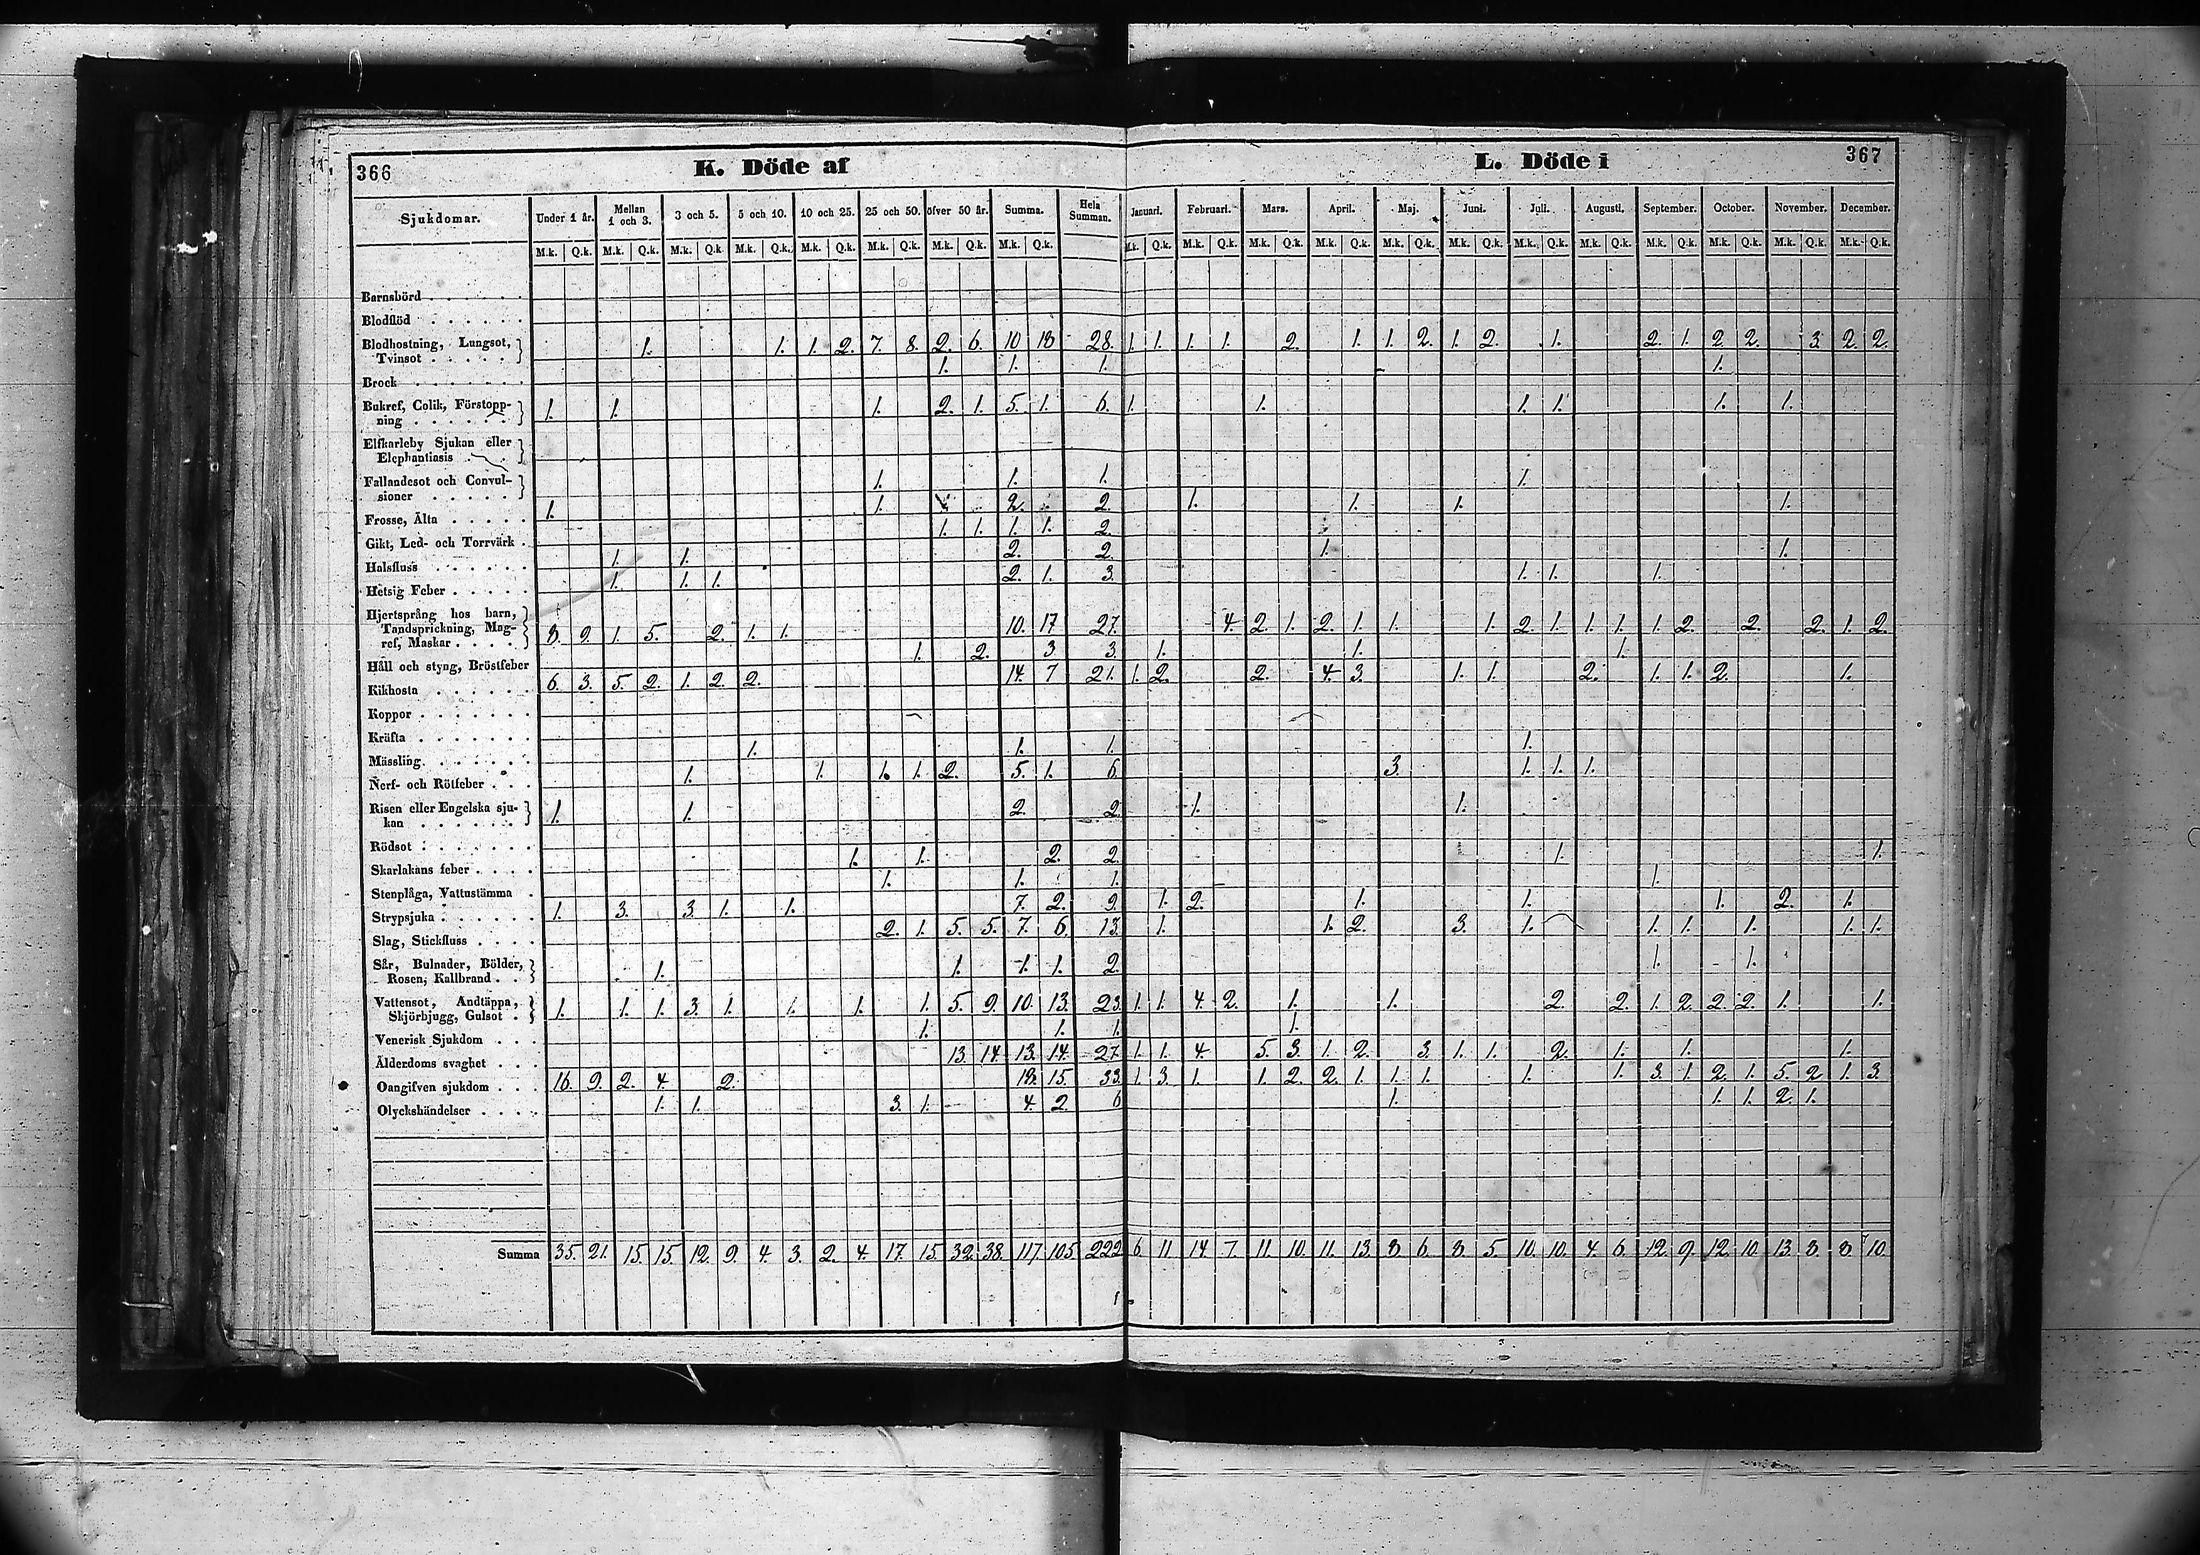 366 K. Döde af
L. Döde i 367
Sjukdomar. Under 1 år. Mellan 1 och 3. 3 och 5. 5 och 10. 10 och 25. 25 och 50. öfver 50 år. Summa. Hela Summan. Januari. Februari. Mars. April. Maj. Juni. Juli. Augusti. September. October. November. December.
M.k. Q.k. M.k. Q.k. M.k. Q.k. M.k. Q.k. M.k. Q.k. M.k. Q.k. M.k. Q.k. M.k. Q.k. M.k. Q.k. M.k. Q.k. M.k. Q.k. M.k. Q.k. M.k. Q.k. M.k. Q.k. M.k. Q.k. M.k. Q.k. M.k. Q.k. M.k. Q.k. M.k. Q.k. M.k. Q.k.
Barnsbörd
Blodflöd
Blodhostning, Lungsot,
Tvinsot 1. 1. 1. 2. 7. 8. 2. 6. 10 18 28. 1. 1. 1. 1. 2. 1. 1. 2. 1. 2. 1. 2. 1. 2. 2. 3. 2. 2.
Brock 1. 1. 1. 1.
Bukref, Colik, Förstopp-
ning 1. 1. 1. 2. 1. 5. 1. 6. 1. 1. 1. 1. 1. 1.
Elfkarleby Sjukan eller
Elephantiasis
Fallandesot och Convul-
sioner 1. 1. 1. 1.
Frosse, Älta 1. 1. 2. 2. 1. 1. 1. 1.
Gikt, Led- och Torrvärk 1. 1. 1. 1. 2.
Halsfluss 1. 1. 2. 2. 1. 1.
Hetsig Feber 1. 1. 1. 2. 1. 3. 1. 1. 1.
Hjertsprång hos barn,
Tandsprickning, Mag-
ref, Maskar 8. 9. 1. 5. 2. 1. 1. 10. 17 27. 4. 2. 1. 2. 1. 1. 1. 2. 1. 1. 1. 1. 2. 2. 2. 1. 2.
Håll och styng, Bröstfeber 1. 2. 3 3. 1. 1. 1.
Kikhosta 6. 3. 5. 2. 1. 2. 2. 14. 7 21. 1. 2. 2. 4. 3. 1. 1. 2. 1. 1. 2. 1.
Koppor
Kräfta
Mässling 1. 1. 1. 1.
Nerf- och Rötfeber 1. 1. 1. 1. 2. 5. 1. 6 3. 1. 1. 1.
Risen eller Engelska sju-
kan 1. 1. 2. 2. 1. 1.
Rödsot
Skarlakans feber 1. 1. 2. 2. 1. 1.
Stenplåga, Vattustämma 1. 1. 1. 1.
Strypsjuka 1. 3. 3. 1. 1. 7. 2. 9. 1. 2. 1. 1. 1. 2. 1.
Slag, Stickfluss 2. 1. 5. 5. 7. 6. 13. 1. 1. 2. 3. 1. 1. 1. 1. 1. 1.
Sår, Bulnader, Bölder,
Rosen, Kallbrand 1. 1. 1. 1. 2. 1. 1.
Vattensot, Andtäppa,
Skjörbjugg, Gulsot 1. 1. 1. 3. 1. 1. 1. 1. 5. 9. 10. 13. 23. 1. 1. 4. 2. 1. 1. 2. 2. 1. 2. 2. 2. 1. 1.
Venerisk Sjukdom 1. 1. 1. 1.
Ålderdoms svaghet 13. 14. 13. 14. 27. 1. 1. 4. 5. 3. 1. 2. 3. 1. 1. 2. 1. 1. 1.
Oangifven sjukdom 16. 9. 2. 4. 2. 18. 15. 33. 1. 3. 1. 1. 2. 2. 1. 1. 1. 1. 1. 3. 1. 2. 1. 5. 2 1. 3.
Olyckshändelser 1. 1. 3. 1. 4. 2. 6 1. 1. 1. 2. 1.
Summa 35. 21. 15. 15. 12. 9. 4. 3. 2. 4. 17. 15. 32. 38. 117. 105 222 6. 11. 14. 7. 11. 10. 11. 13. 8. 6. 8. 5. 10. 10. 4. 6. 12. 9. 12. 10. 13. 8. 8. 10.